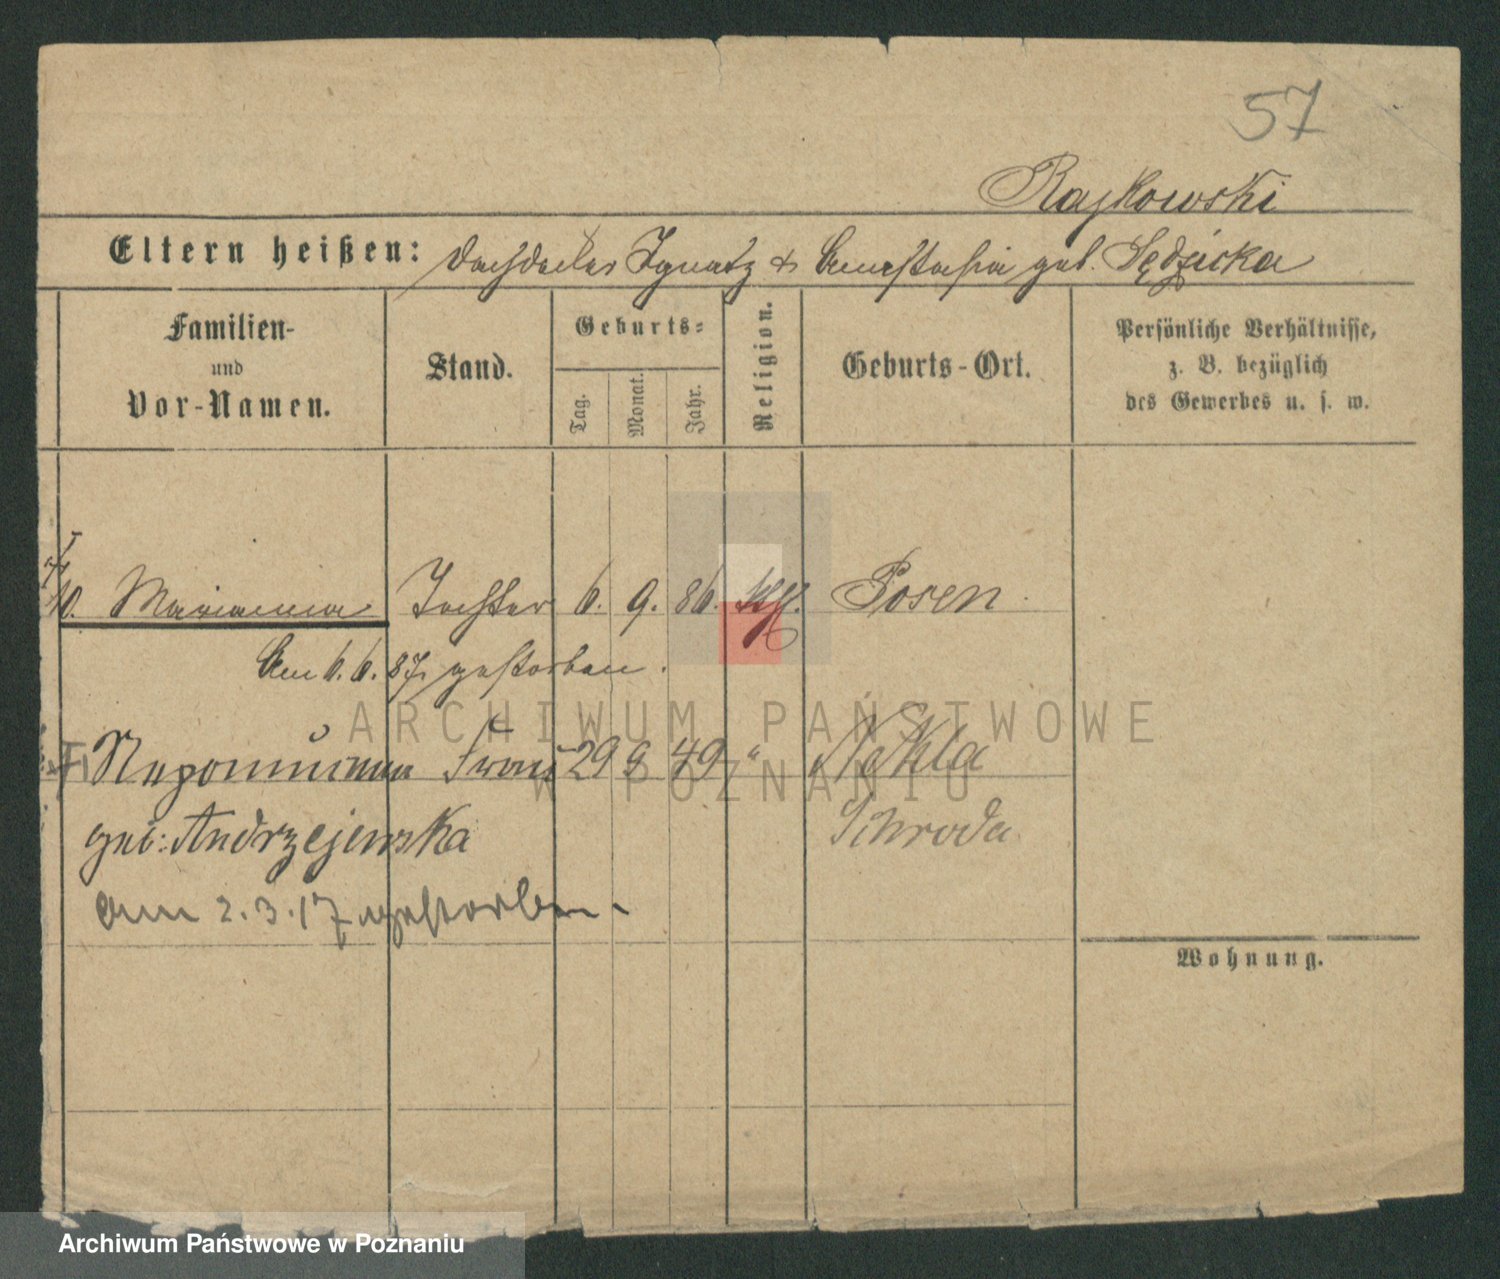 57
Rajkowski
Eltern heißen: Dachdecker Ignatz & Anastasia geb. Sędzicka
Familien-
und
Vor-Namen.
Stand.
Geburts-
Tag.
Monat.
Jahr.
Religion.
Geburts-Ort.
Persönliche Verhältnisse,
z. B. bezüglich
des Gewerbes u. s. w.
10. Marianna Tochter 6. 9. 86. kth. Posen.
Am 6. 6. 87 gestorben.
Nepomucena Frau 29 9 49 " Nekla
Schroda
geb: Andrzejewska
am 2.3.17 gestorben.
Wohnung.
ARCHIWUM PAŃSTWOWE
W POZNANIU
Archiwum Państwowe w Poznaniu